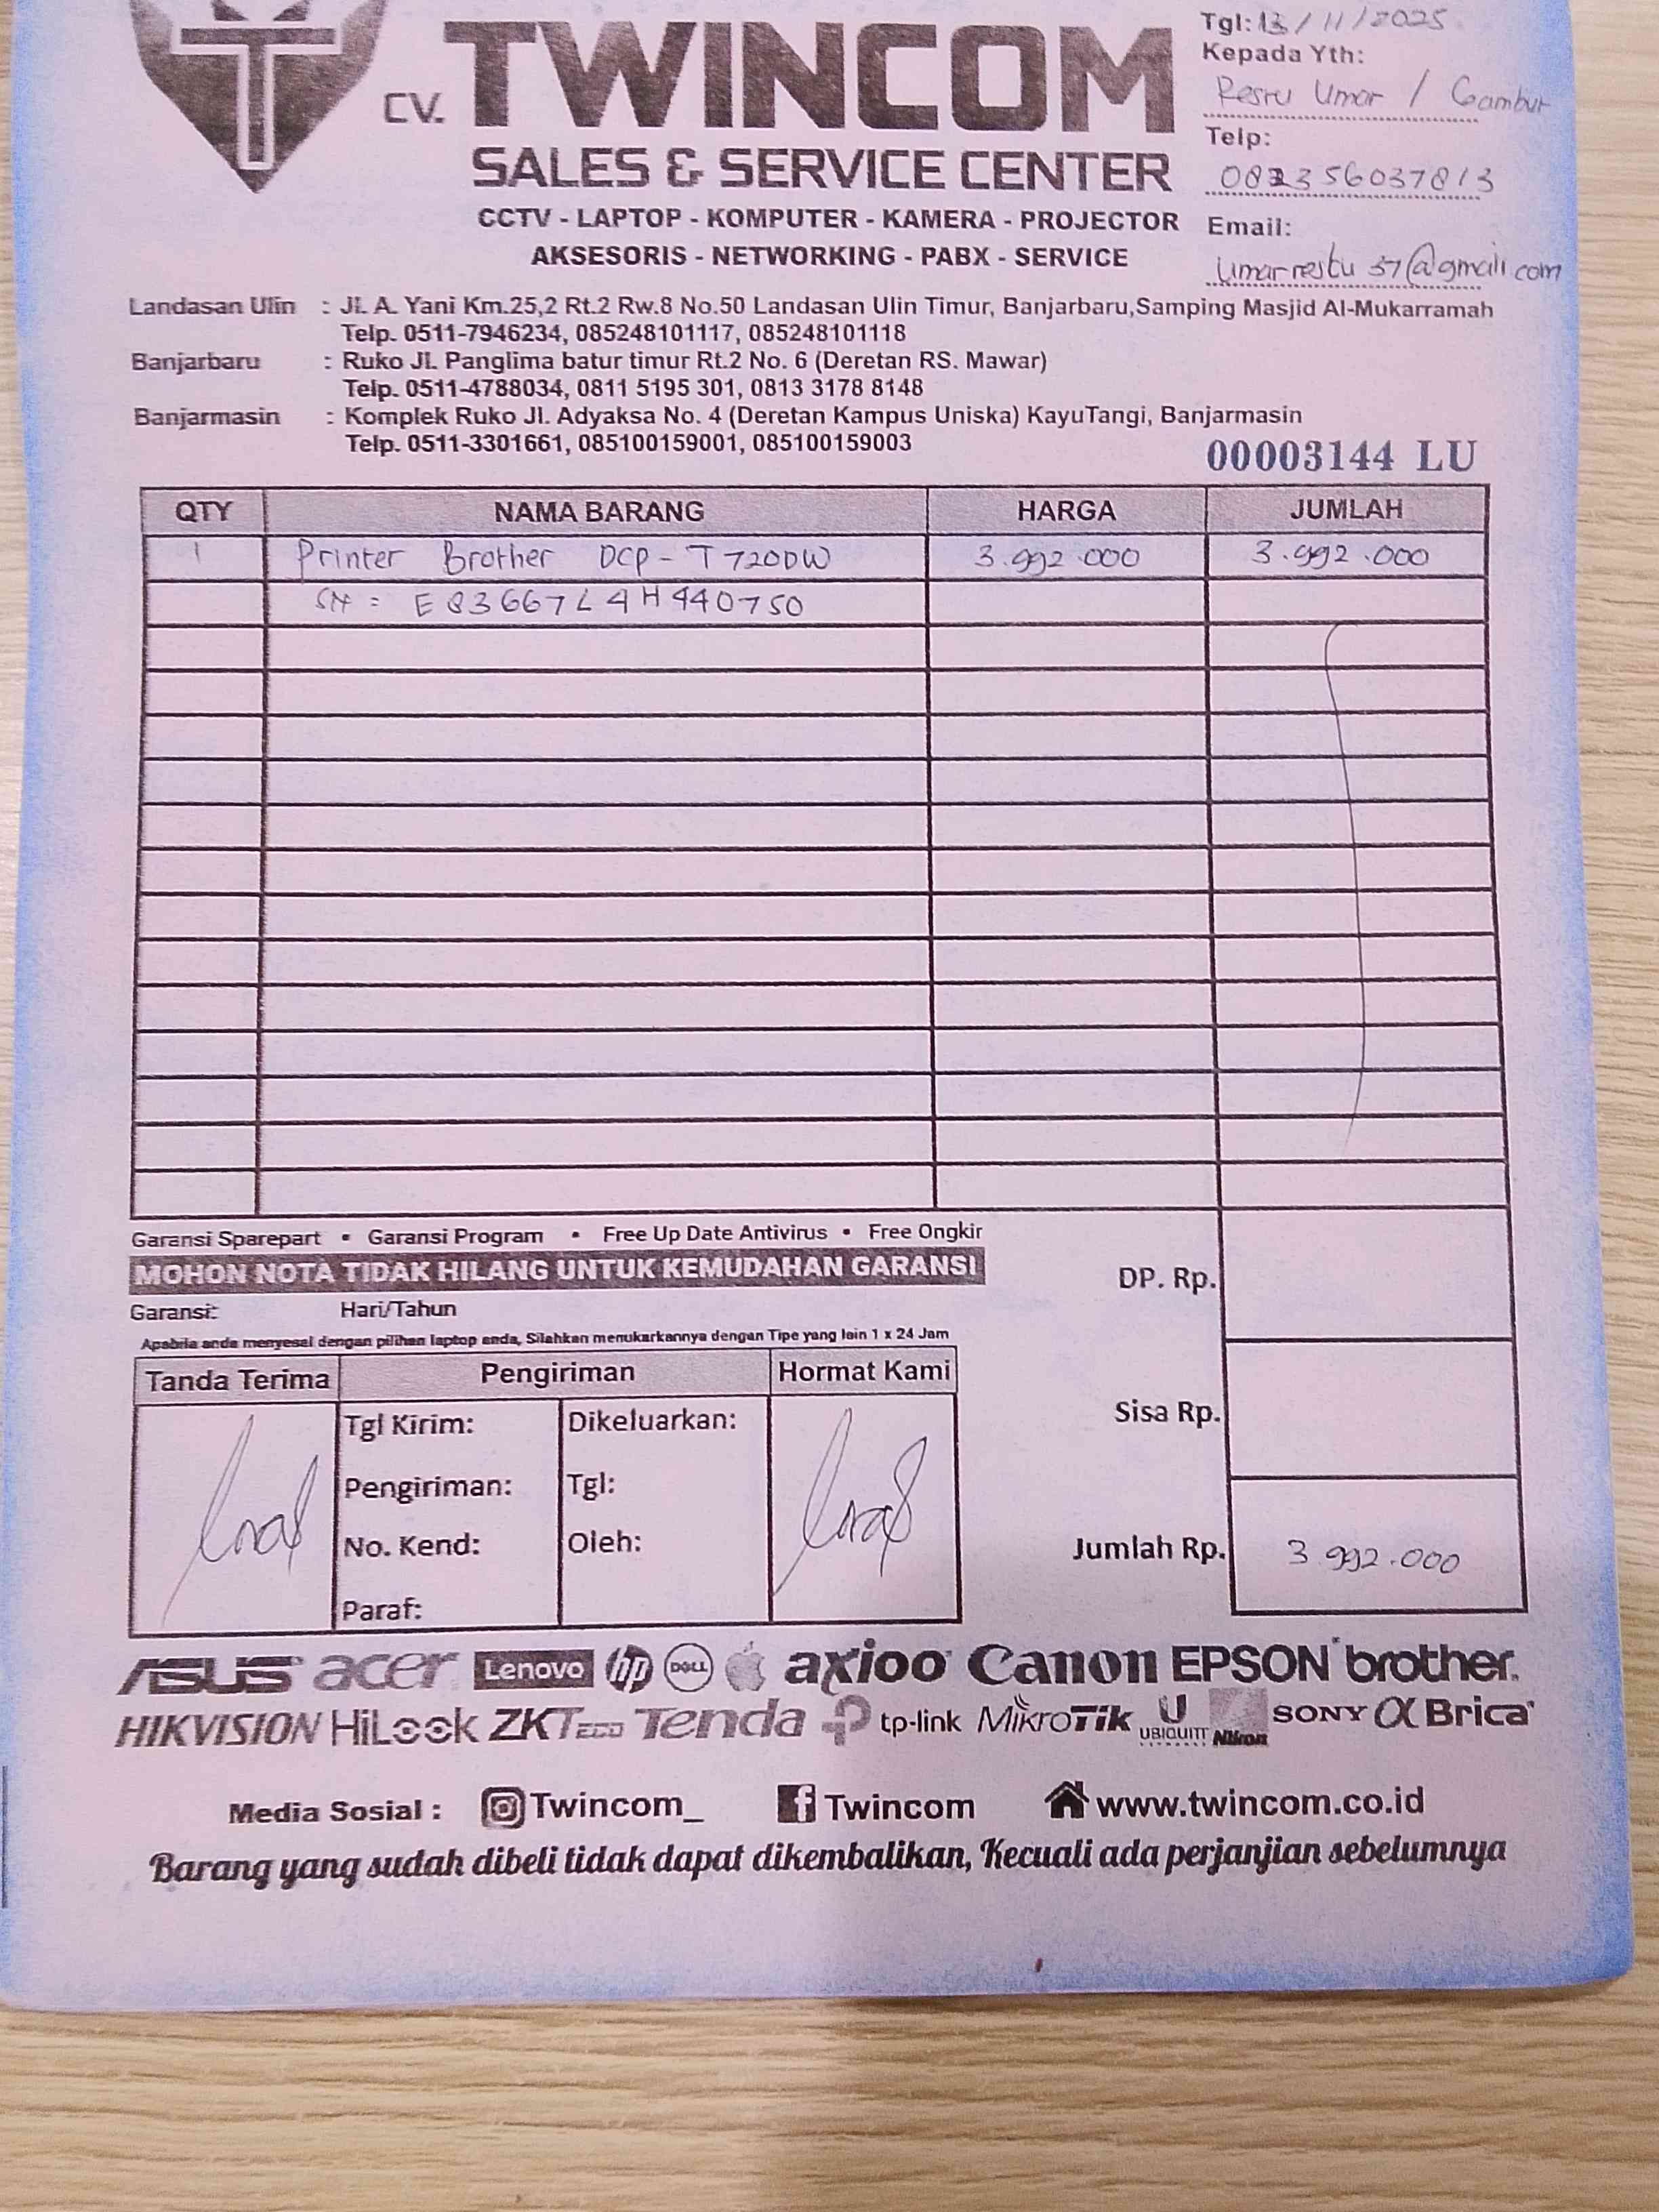 Tgl: 13/11/2025
Kepada Yth:
Restu Umar / Gambut
CV. TWINCOM
SALES & SERVICE CENTER
Telp:
082356037813
CCTV - LAPTOP - KOMPUTER - KAMERA - PROJECTOR
AKSESORIS - NETWORKING - PABX - SERVICE
Email:
Umarrestu 37@gmail.com
Landasan Ulin : Jl. A. Yani Km.25,2 Rt.2 Rw.8 No.50 Landasan Ulin Timur, Banjarbaru,Samping Masjid Al-Mukarramah
Telp. 0511-7946234, 085248101117, 085248101118
Banjarbaru : Ruko Jl. Panglima batur timur Rt.2 No. 6 (Deretan RS. Mawar)
Telp. 0511-4788034, 0811 5195 301, 0813 3178 8148
Banjarmasin : Komplek Ruko Jl. Adyaksa No. 4 (Deretan Kampus Uniska) KayuTangi, Banjarmasin
Telp. 0511-3301661, 085100159001, 085100159003
00003144 LU
QTY NAMA BARANG HARGA JUMLAH
1 Printer Brother DCP-T720DW 3.992.000 3.992.000
SN = E83667L4H440750
Garansi Sparepart • Garansi Program • Free Up Date Antivirus • Free Ongkir
MOHON NOTA TIDAK HILANG UNTUK KEMUDAHAN GARANSI
Garansi: Hari/Tahun
Apabila anda menyesal dengan pilihan laptop anda, Silahkan menukarkannya dengan Tipe yang lain 1 x 24 Jam
DP. Rp.
Sisa Rp.
Jumlah Rp. 3.992.000
Tanda Terima Pengiriman Hormat Kami
Tgl Kirim: Dikeluarkan:
Pengiriman: Tgl:
No. Kend: Oleh:
Paraf:
ASUS acer Lenovo hp DELL axioo Canon EPSON brother.
HIKVISION HiLook ZKTeco Tenda tp-link MikroTik UBIQUITI Nikon SONY α Brica
Media Sosial : Twincom_ Twincom www.twincom.co.id
Barang yang sudah dibeli tidak dapat dikembalikan, Kecuali ada perjanjian sebelumnya